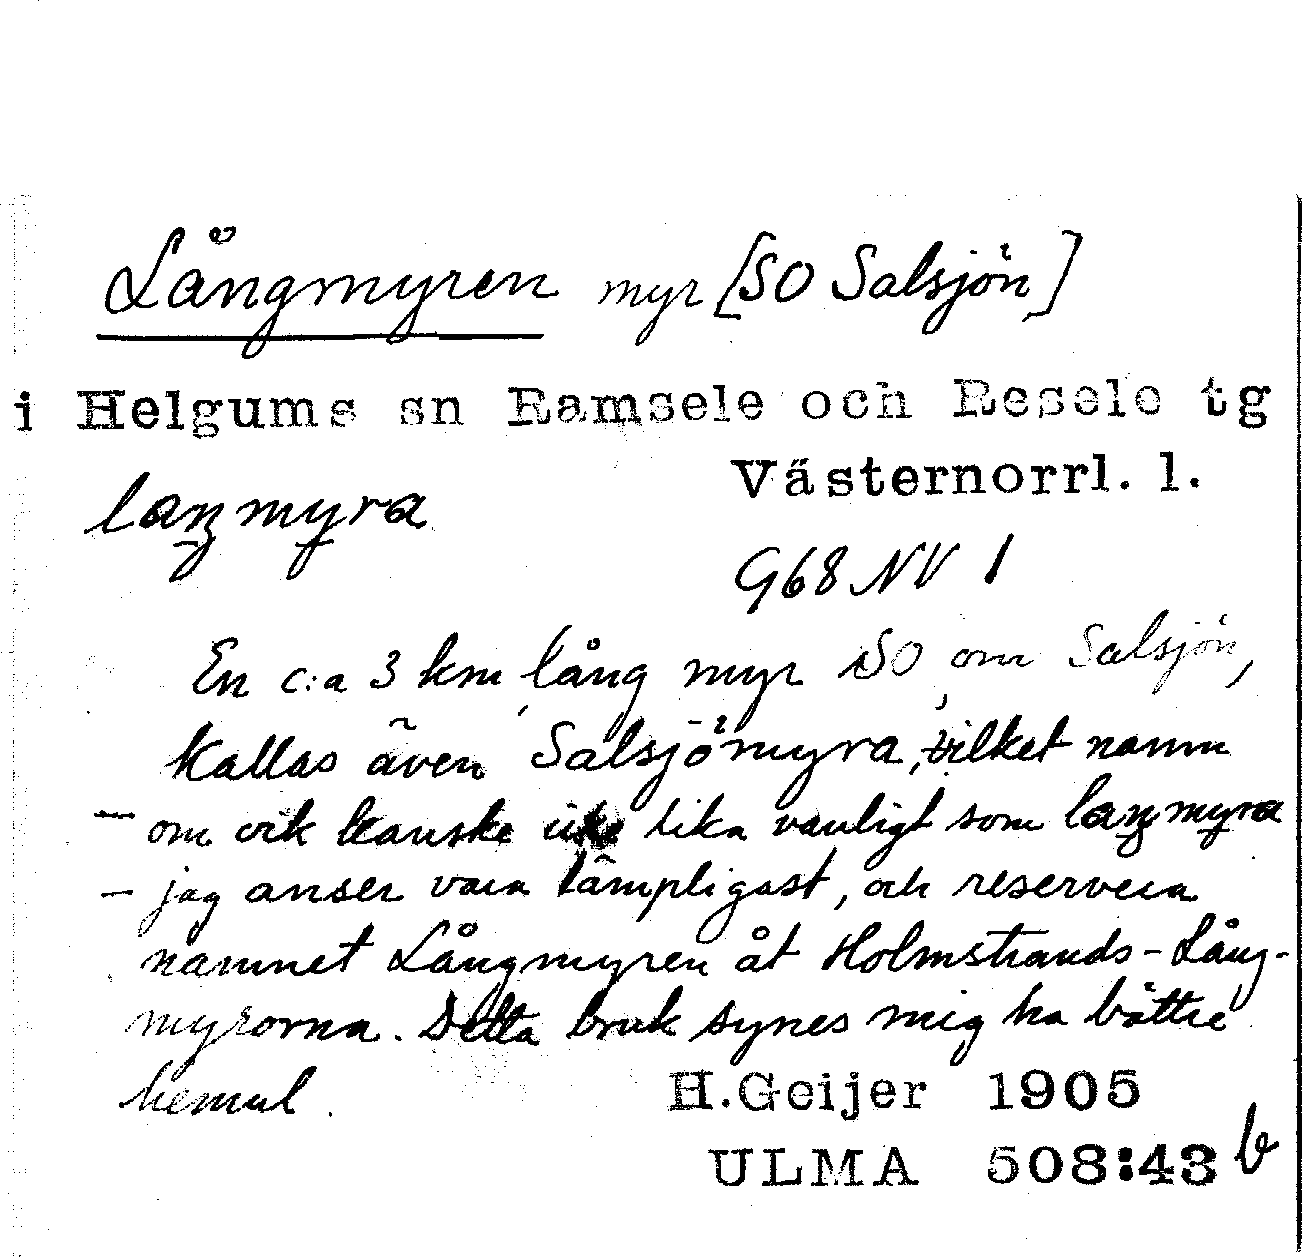 Långmyren myr [SO Salsjön]
i Helgums sn Ramsele och Resele tg
Västernorrl. l.
laŋmyra
G68 NV 1
En c:a 3 km lång myr SO om Salsjön,
kallas även Salsjömyra, vilket namn
— om ock kanske icke lika vanligt som laŋmyra
— jag anser vara lämpligast, och reservera
namnet Långmyren åt Holmstrands-Lång-
myrorna. Detta bruk synes mig ha bättre
hemul.
H.Geijer 1905
ULMA 508:43 b